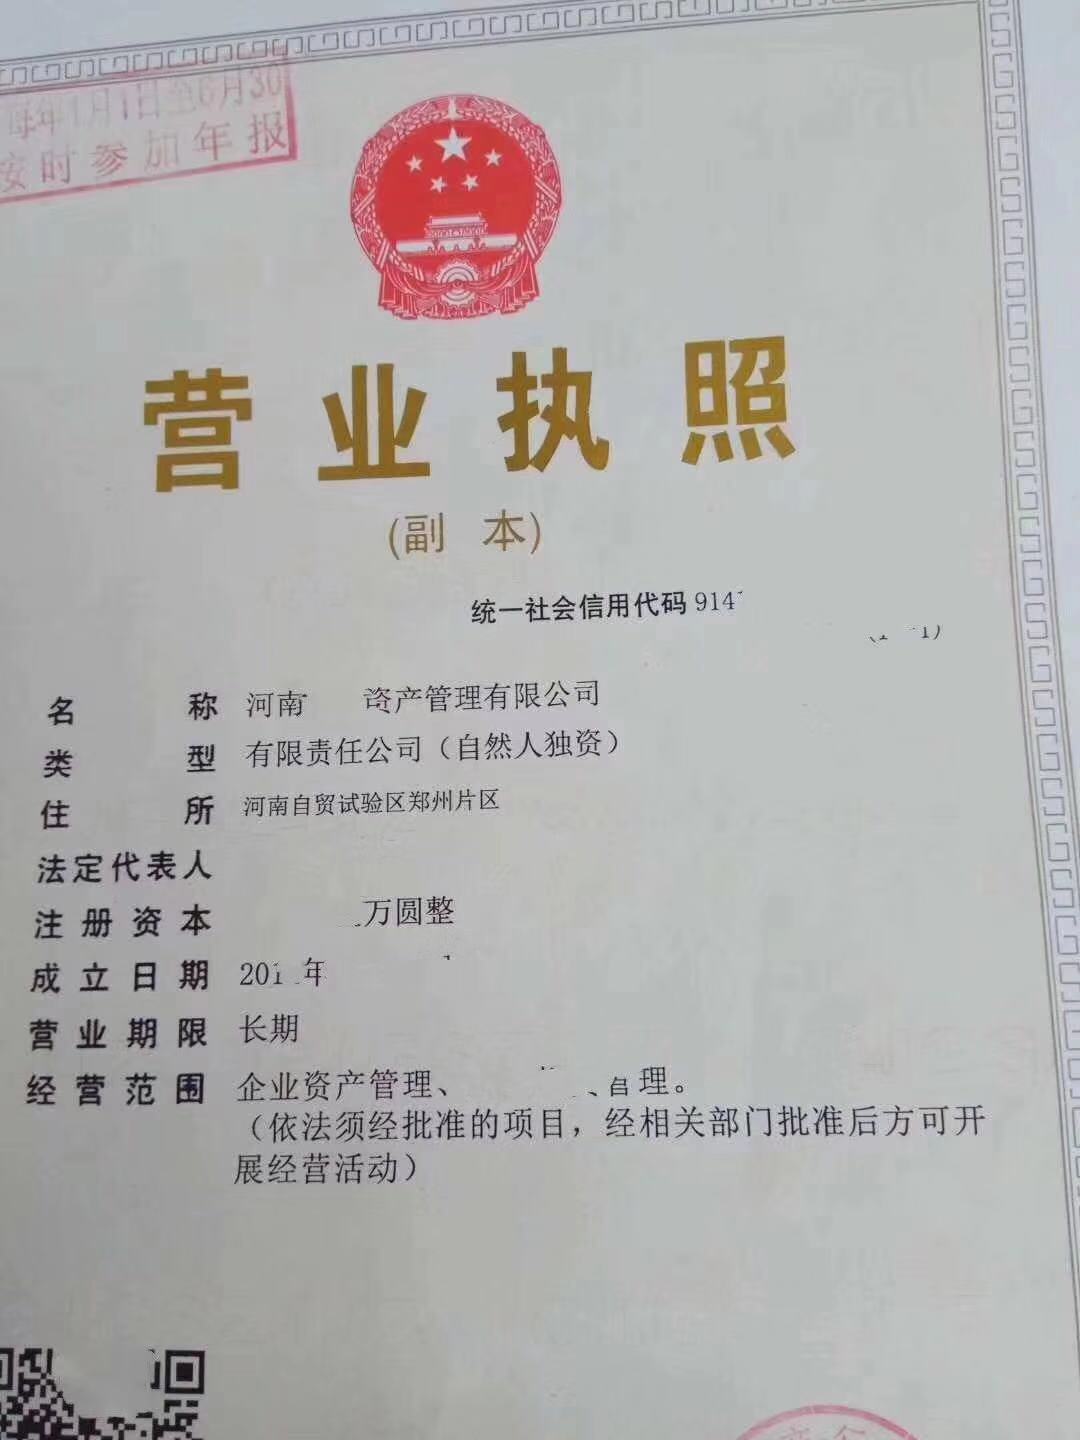 每年1月1日至6月30
按时参加年报
营业执照
(副本)
统一社会信用代码 914
名称 河南 资产管理有限公司
类型 有限责任公司（自然人独资）
住所 河南自贸试验区郑州片区
法定代表人
注册资本 万圆整
成立日期 201 年
营业期限 长期
经营范围 企业资产管理、 管理。
（依法须经批准的项目，经相关部门批准后方可开
展经营活动）